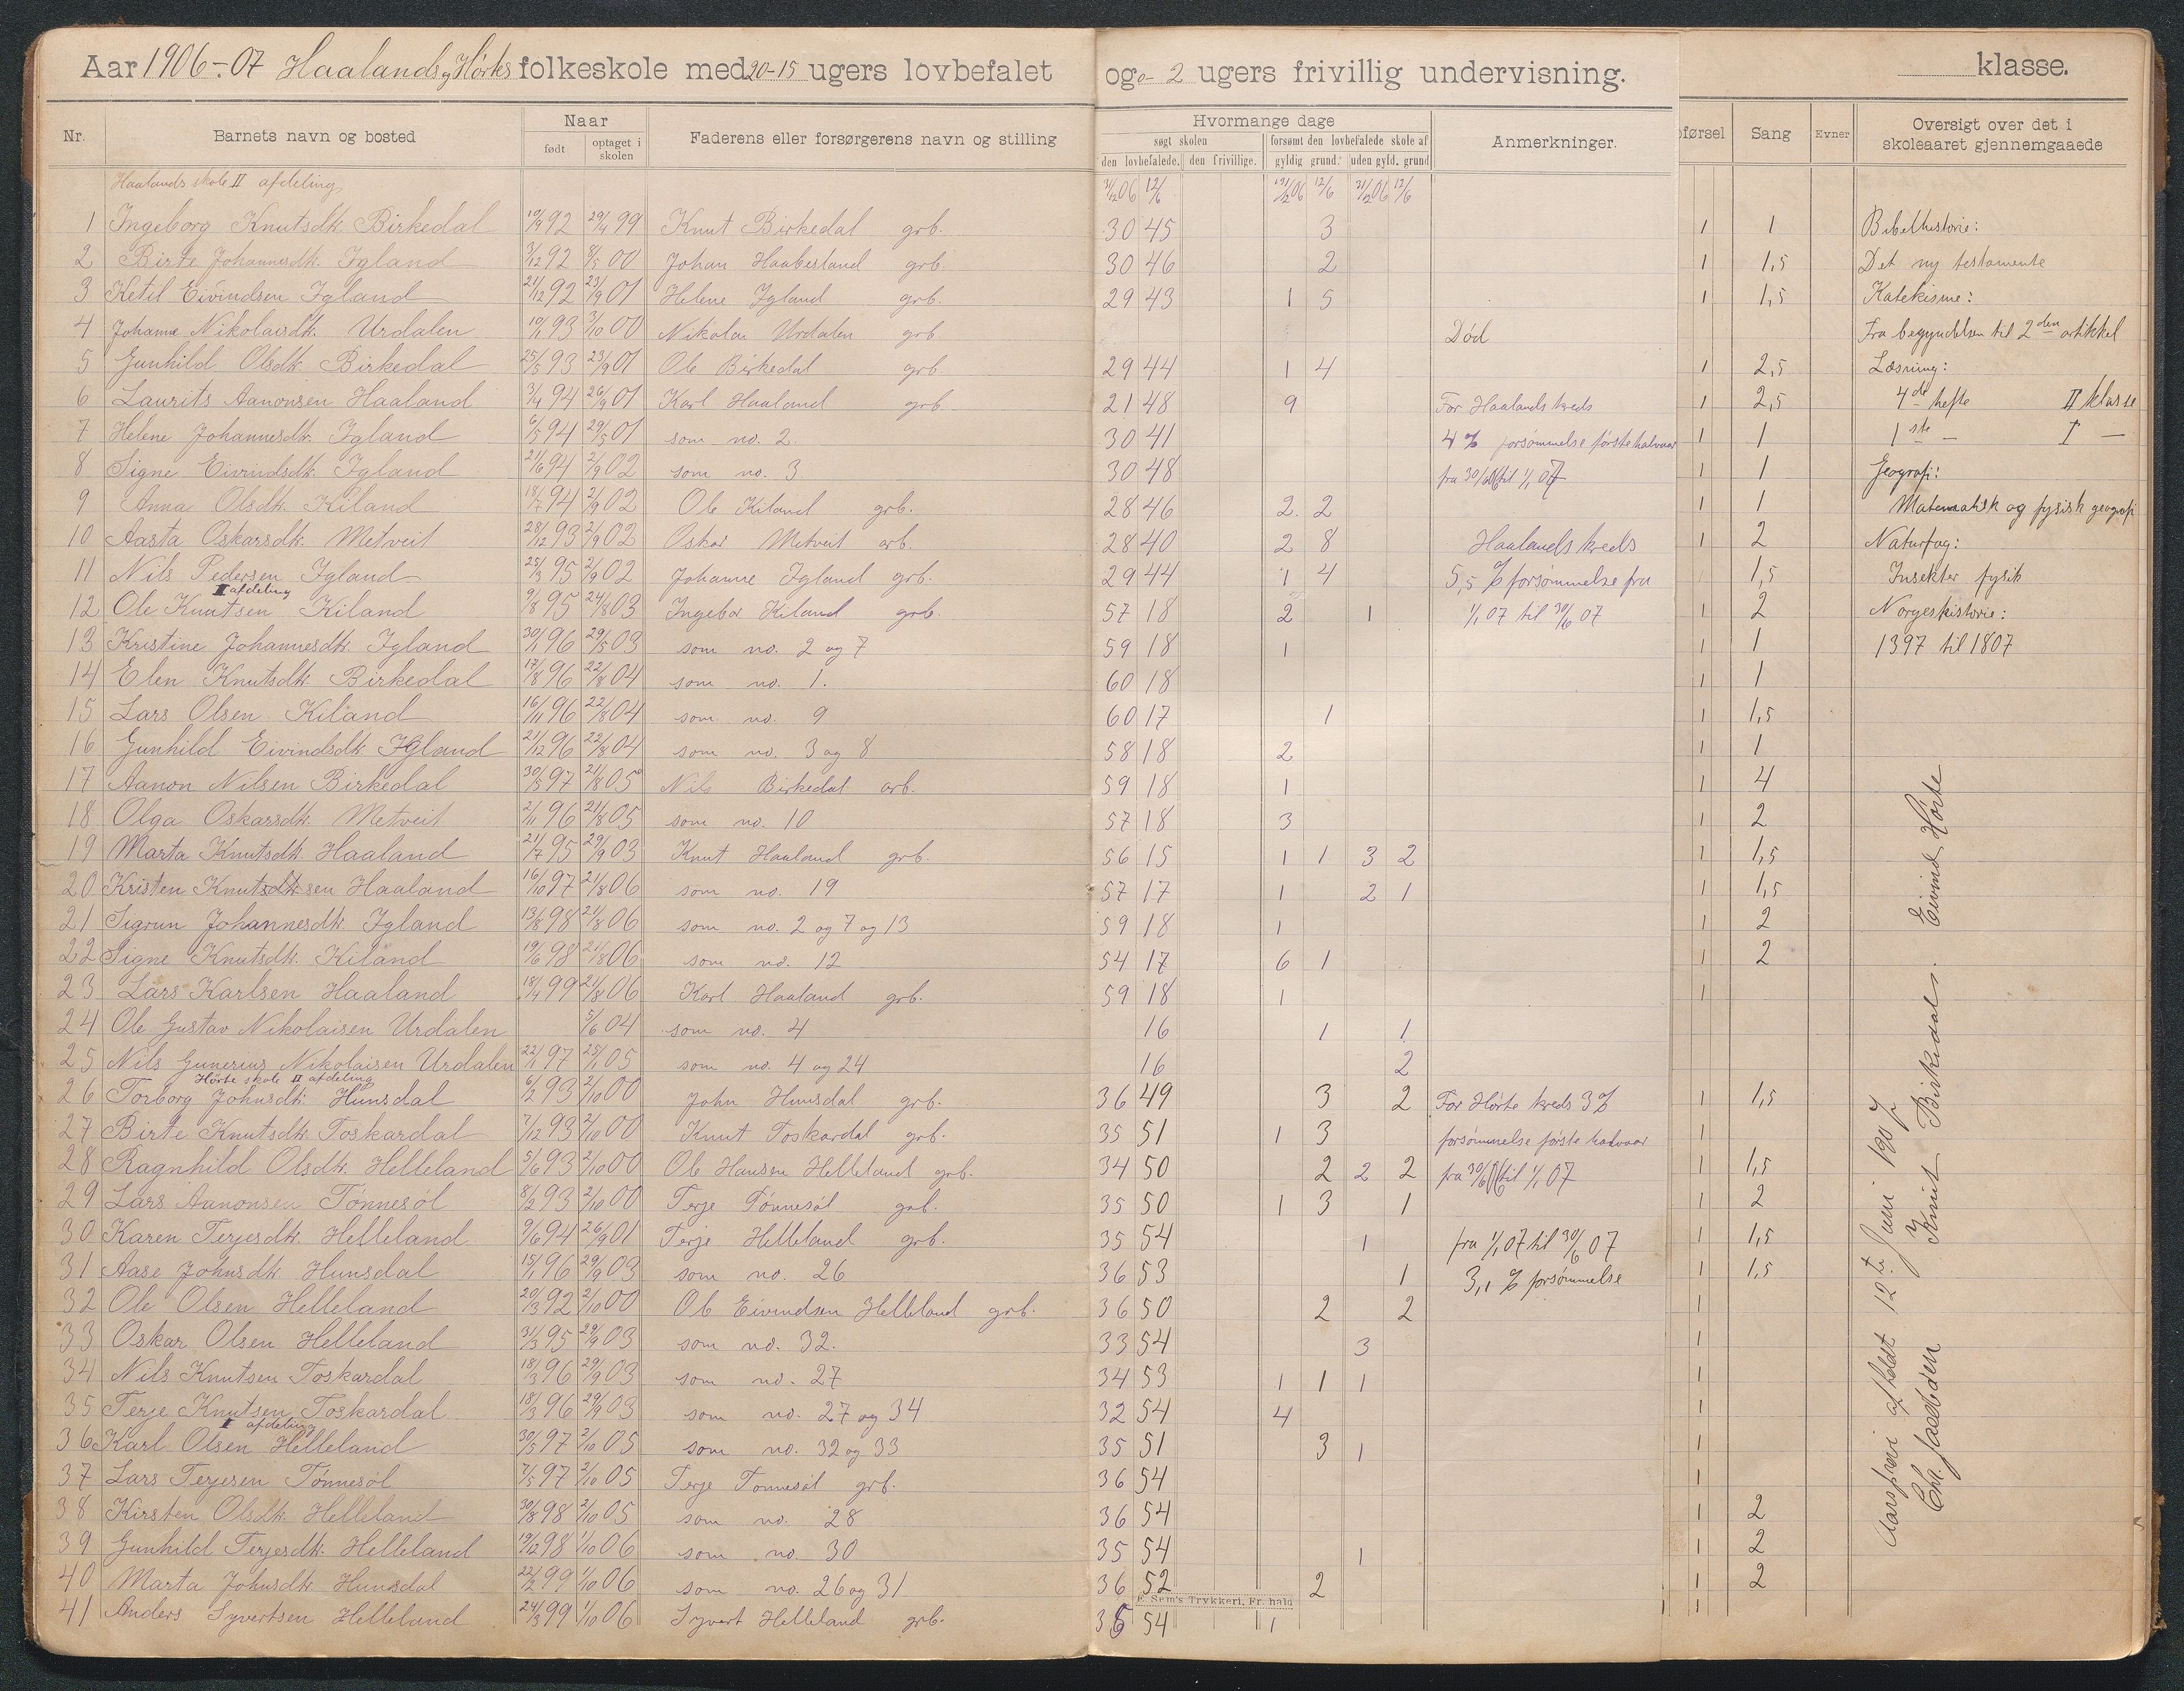 Aar 1906-07 Haalands og Hørtes folkeskole med 20-15 ugers lovbefalet og 0-2 ugers frivillig undervisning. klasse.
Nr. Barnets navn og bosted Naar Faderens eller forsørgerens navn og stilling Hvormange dage Anmerkninger. førsel Sang Evner Oversigt over det i
født optaget i skolen søgt skolen forsømt den lovbefalede skole af skoleaaret gjennemgaaede
den lovbefalede. den frivillige. gyldig grund. uden gyld. grund
Haalands skole II afdeling
1 Ingeborg Knutsdtr. Birkedal 19/9 92 29/4 99 Knut Birkedal grb. 30 45 3 1 1 Bibelhistorie:
2 Birte Johannesdtr. Igland 3/12 92 8/5 00 Johan Haabesland grb. 30 46 2 1 1,5 Det ny testamente
3 Ketil Eivindsen Igland 21/12 92 23/9 01 Helene Igland grb. 29 43 1 5 1 1,5 Katekisme:
4 Johanne Nikolaisdtr. Urdalen 10/1 93 3/10 00 Nikolai Urdalen grb. Død Fra begyndelsen til 2den artikkel
5 Gunhild Olsdtr. Birkedal 25/5 93 23/9 01 Ole Birkedal grb. 29 44 1 4 1 2,5 Læsning:
6 Laurits Aanonsen Haaland 3/4 94 26/9 01 Karl Haaland grb. 21 48 9 For Haalands kreds 1 2,5 4de hefte II klasse
7 Helene Johannesdtr. Igland 6/5 94 29/5 01 som no. 2. 30 41 4 % forsømmelse første halvaar 1 1 1ste — I —
8 Signe Eivindsdtr. Igland 21/6 94 2/9 02 som no. 3 30 48 fra 30/6 06 til 1/1 07 1 1 Geografi:
9 Anna Olsdtr. Kiland 18/7 94 2/9 02 Ole Kiland grb. 28 46 2 2 1 1 Matematisk og fysisk geografi
10 Aasta Oskarsdtr. Metveit 28/12 93 2/9 02 Oskar Metveit arb. 28 40 2 8 Haalands kreds 1 2 Naturfag:
11 Nils Pedersen Igland 25/3 95 2/9 02 Johanne Igland grb. 29 44 1 4 5,5 % forsømmelse fra 1,5 Insekter fysik
I afdeling
12 Ole Knutsen Kiland 9/8 95 24/8 03 Ingebor Kiland grb. 57 18 2 1 1/1 07 til 30/6 07 1 2 Norgeshistorie:
13 Kristine Johannesdtr. Igland 30/1 96 29/5 03 som no. 2 og 7 59 18 1 1 1 1397 til 1807
14 Elen Knutsdtr. Birkedal 17/8 96 22/8 04 som no. 1. 60 18 1 1
15 Lars Olsen Kiland 16/11 96 22/8 04 som no. 9 60 17 1 1 1,5
16 Gunhild Eivindsdtr Igland 21/12 96 22/8 04 som no. 3 og 8 58 18 2 1 1
17 Aanon Nilsen Birkedal 30/5 97 21/8 05 Nils Birkedal arb. 59 18 1 1 4
18 Olga Oskarsdtr. Metveit 2/11 96 21/8 05 som no. 10 57 18 3 1 2
19 Marta Knutsdtr. Haaland 21/7 95 29/9 03 Knut Haaland grb. 56 15 1 1 3 2 1 1,5
20 Kristen Knutsdtr. sen Haaland 16/10 97 21/8 06 som no. 19 57 17 1 2 1 1 1,5
21 Sigrun Johannesdtr. Igland 13/8 98 21/8 06 som no. 2 og 7 og 13 59 18 1 1 2
22 Signe Knutsdtr. Kiland 19/6 98 21/8 06 som no. 12 54 17 6 1 1 2
23 Lars Karlsen Haaland 18/4 99 21/8 06 Karl Haaland grb. 59 18 1 1
24 Ole Gustav Nikolaisen Urdalen 5/6 04 som no. 4 16 1 1
25 Nils Gunerius Nikolaisen Urdalen 22/1 97 25/1 05 som no. 4 og 24 16 2
Hørte skole II afdeling
26 Torborg Johnsdtr. Hunsdal 6/2 93 2/10 00 John Hunsdal grb. 36 49 3 2 For Hørte kreds 3 % 1 1,5
27 Birte Knutsdtr. Toskardal 7/12 93 2/10 00 Knut Toskardal grb. 35 51 1 3 forsømmelse første halvaar 1
28 Ragnhild Olsdtr. Helleland 5/6 93 2/10 00 Ole Hansen Helleland grb. 34 50 2 2 2 fra 30/6 06 til 1/1 07 1 1,5
29 Lars Aanonsen Tønnesøl 8/2 93 2/10 00 Terje Tønnesøl grb. 35 50 1 3 1 1 2
30 Karen Terjesdtr. Helleland 9/6 94 26/9 01 Terje Helleland grb. 35 54 1 fra 1/1 07 til 30/6 07 1 1,5
31 Aase Johnsdtr. Hunsdal 15/1 96 29/9 03 som no. 26 36 53 1 3,1 % forsømmelse 1 1,5
32 Ole Olsen Helleland 20/3 92 2/10 00 Ole Eivindsen Helleland grb. 36 50 2 2 1
33 Oskar Olsen Helleland 31/3 95 29/9 03 som no. 32. 33 54 3 1
34 Nils Knutsen Toskardal 18/3 96 29/9 03 som no. 27 34 53 1 1 1 1
35 Terje Knutsen Toskardal 18/3 96 29/9 03 som no. 27 og 34 32 54 4 1
I afdeling
36 Karl Olsen Helleland 30/5 97 2/10 05 som no. 32 og 33 35 51 3 1 1
37 Lars Terjesen Tønnesøl 7/5 97 2/10 05 Terje Tønnesøl grb. 36 54 1
38 Kirsten Olsdtr. Helleland 30/8 98 2/10 05 som no. 28 36 54 1 2
39 Gunhild Terjesdtr. Helleland 19/12 98 1/10 06 som no. 30 35 54 1 1 2
40 Marta Johnsdtr. Hunsdal 22/2 99 1/10 06 som no. 26 og 31 36 52 2 1 2
E. Sem's Trykkeri, Fr. hald
41 Anders Syvertsen Helleland 24/3 99 1/10 06 Syvert Helleland grb. 35 54 1 1
Aarsprøve afholdt 12te Juni 1907
Knut Birkedal. Eivind Hørte